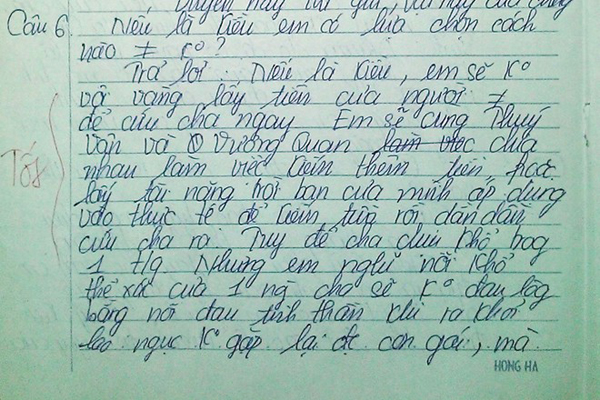 Duyên này thì giữ, vật này của chung
Câu 6. Nếu là Kiều em có lựa chọn cách
nào ≠ k°?
Trả lời: Nếu là Kiều, em sẽ k°
vội vàng lấy tiền của người ≠
để cứu cha ngay. Em sẽ cùng Thuý
Vân và Vương Quan làm việc chia
nhau làm việc kiếm thêm tiền hoặc
lấy tài năng trời ban của mình áp dụng
vào thực tế để kiếm tiền rồi dần dần
cứu cha ra. Tuy để cha chịu khổ
1 t/g. Nhưng em nghĩ nỗi khổ
thể xác của 1 ng cha sẽ k° đau lòng
bằng nỗi đau tinh thần khi ra khỏi
lao ngục k° gặp lại đc con gái, mà
Tốt
HONG HA